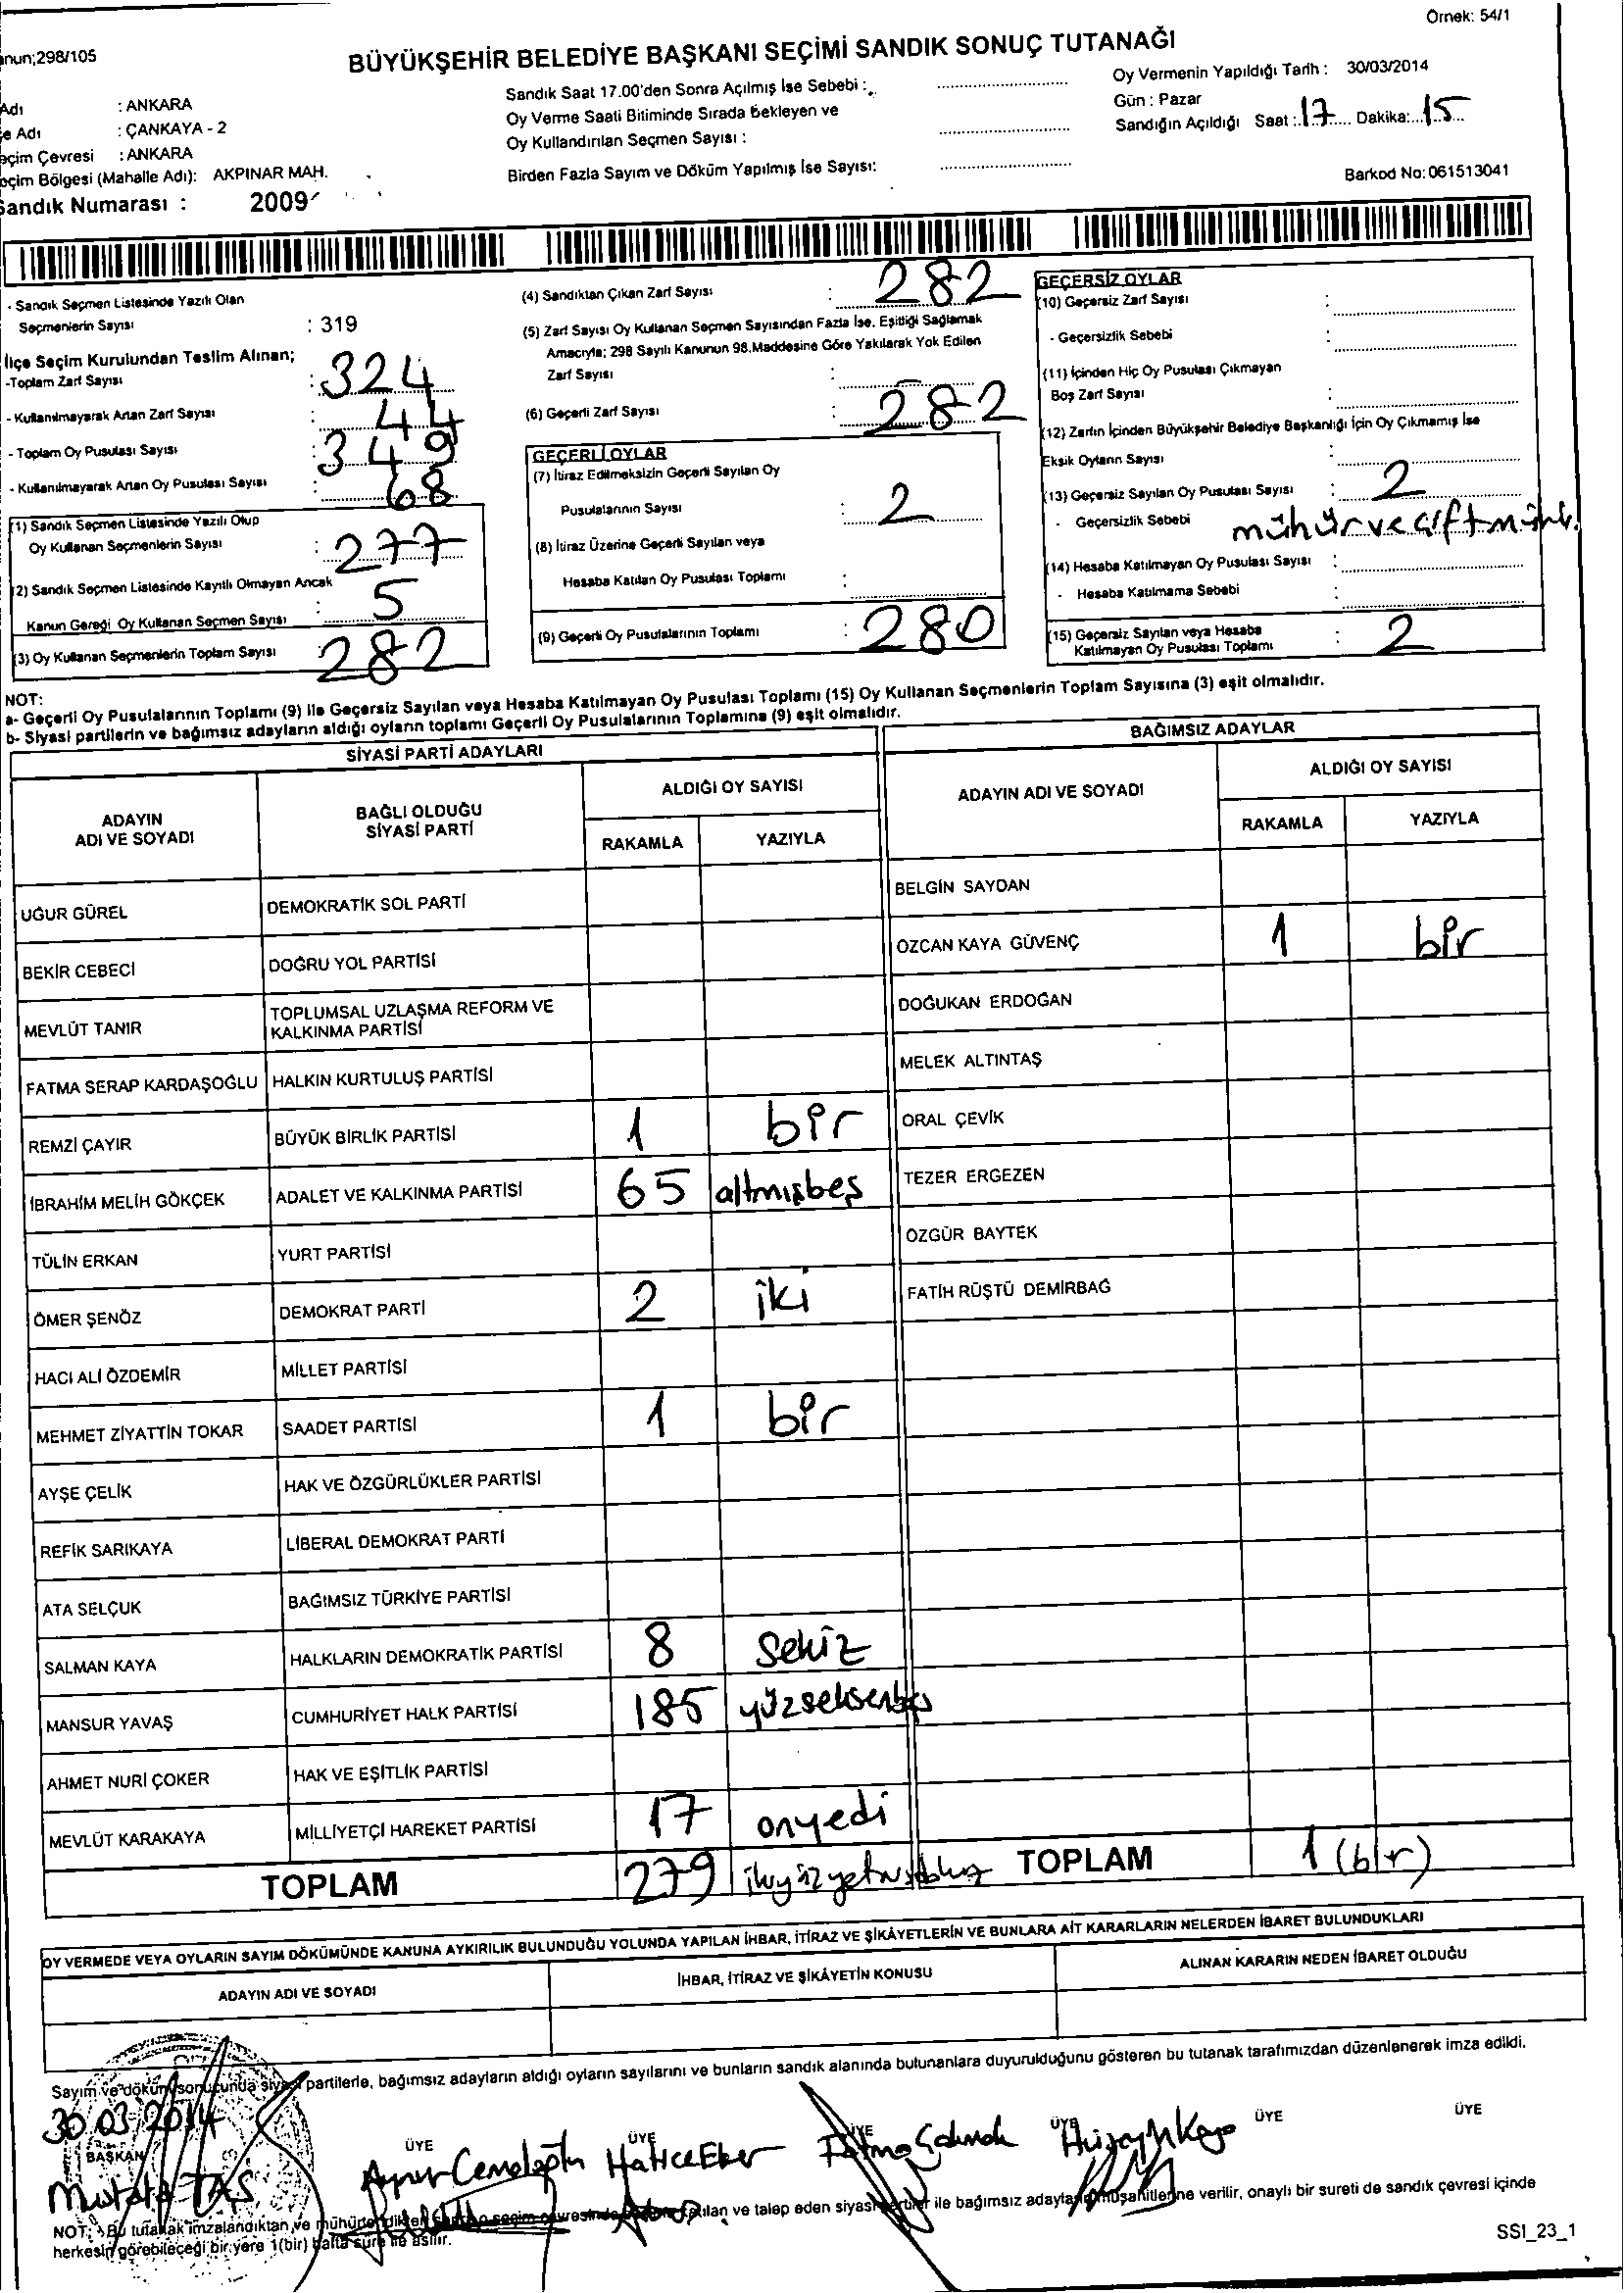 Örnek: 54/1
anun;298/105
BÜYÜKŞEHİR BELEDİYE BAŞKANI SEÇİMİ SANDIK SONUÇ TUTANAĞI
Adı : ANKARA
e Adı : ÇANKAYA - 2
eçim Çevresi : ANKARA
eçim Bölgesi (Mahalle Adı): AKPINAR MAH.
Sandık Numarası : 2009
Sandık Saat 17.00'den Sonra Açılmış İse Sebebi :
Oy Verme Saati Bitiminde Sırada Bekleyen ve
Oy Kullandırılan Seçmen Sayısı :
Birden Fazla Sayım ve Döküm Yapılmış İse Sayısı:
Oy Vermenin Yapıldığı Tarih : 30/03/2014
Gün : Pazar
Sandığın Açıldığı Saat : 17 Dakika: 15
Barkod No: 061513041
- Sandık Seçmen Listesinde Yazılı Olan
Seçmenlerin Sayısı : 319
İlçe Seçim Kurulundan Teslim Alınan;
-Toplam Zarf Sayısı : 324
- Kullanılmayarak Artan Zarf Sayısı : 44
- Toplam Oy Pusulası Sayısı : 349
- Kullanılmayarak Artan Oy Pusulası Sayısı : 68
(1) Sandık Seçmen Listesinde Yazılı Olup
Oy Kullanan Seçmenlerin Sayısı : 277
(2) Sandık Seçmen Listesinde Kayıtlı Olmayan Ancak
Kanun Gereği Oy Kullanan Seçmen Sayısı : 5
(3) Oy Kullanan Seçmenlerin Toplam Sayısı 282
(4) Sandıktan Çıkan Zarf Sayısı : 282
(5) Zarf Sayısı Oy Kullanan Seçmen Sayısından Fazla İse, Eşitliği Sağlamak
Amacıyla; 298 Sayılı Kanunun 98.Maddesine Göre Yakılarak Yok Edilen
Zarf Sayısı :
(6) Geçerli Zarf Sayısı : 282
GEÇERLİ OYLAR
(7) İtiraz Edilmeksizin Geçerli Sayılan Oy
Pusulalarının Sayısı : 2
(8) İtiraz Üzerine Geçerli Sayılan veya
Hesaba Katılan Oy Pusulası Toplamı :
(9) Geçerli Oy Pusulalarının Toplamı : 280
GEÇERSİZ OYLAR
(10) Geçersiz Zarf Sayısı :
- Geçersizlik Sebebi :
(11) İçinden Hiç Oy Pusulası Çıkmayan
Boş Zarf Sayısı :
(12) Zarfın İçinden Büyükşehir Belediye Başkanlığı İçin Oy Çıkmamış İse
Eksik Oyların Sayısı :
(13) Geçersiz Sayılan Oy Pusulası Sayısı : 2
- Geçersizlik Sebebi mühür ve çift mühür.
(14) Hesaba Katılmayan Oy Pusulası Sayısı :
- Hesaba Katılmama Sebebi :
(15) Geçersiz Sayılan veya Hesaba
Katılmayan Oy Pusulası Toplamı : 2
NOT:
a- Geçerli Oy Pusulalarının Toplamı (9) ile Geçersiz Sayılan veya Hesaba Katılmayan Oy Pusulası Toplamı (15) Oy Kullanan Seçmenlerin Toplam Sayısına (3) eşit olmalıdır.
b- Siyasi partilerin ve bağımsız adayların aldığı oyların toplamı Geçerli Oy Pusulalarının Toplamına (9) eşit olmalıdır.
SİYASİ PARTİ ADAYLARI
ADAYIN ADI VE SOYADI
BAĞLI OLDUĞU SİYASİ PARTİ
ALDIĞI OY SAYISI
RAKAMLA YAZIYLA
UĞUR GÜREL DEMOKRATİK SOL PARTİ
BEKİR CEBECİ DOĞRU YOL PARTİSİ
MEVLÜT TANIR TOPLUMSAL UZLAŞMA REFORM VE
KALKINMA PARTİSİ
FATMA SERAP KARDAŞOĞLU HALKIN KURTULUŞ PARTİSİ
REMZİ ÇAYIR BÜYÜK BİRLİK PARTİSİ 1 bir
İBRAHİM MELİH GÖKÇEK ADALET VE KALKINMA PARTİSİ 65 altmışbeş
TÜLİN ERKAN YURT PARTİSİ
ÖMER ŞENÖZ DEMOKRAT PARTİ 2 iki
HACI ALİ ÖZDEMİR MİLLET PARTİSİ
MEHMET ZİYATTİN TOKAR SAADET PARTİSİ 1 bir
AYŞE ÇELİK HAK VE ÖZGÜRLÜKLER PARTİSİ
REFİK SARIKAYA LİBERAL DEMOKRAT PARTİ
ATA SELÇUK BAĞIMSIZ TÜRKİYE PARTİSİ
SALMAN KAYA HALKLARIN DEMOKRATİK PARTİSİ 8 sekiz
MANSUR YAVAŞ CUMHURİYET HALK PARTİSİ 185 yüzseksenbeş
AHMET NURİ ÇOKER HAK VE EŞİTLİK PARTİSİ
MEVLÜT KARAKAYA MİLLİYETÇİ HAREKET PARTİSİ 17 onyedi
TOPLAM 279 ikiyüzyetmişdokuz
BAĞIMSIZ ADAYLAR
ADAYIN ADI VE SOYADI
ALDIĞI OY SAYISI
RAKAMLA YAZIYLA
BELGİN SAYDAN
ÖZCAN KAYA GÜVENÇ 1 bir
DOĞUKAN ERDOĞAN
MELEK ALTINTAŞ
ORAL ÇEVİK
TEZER ERGEZEN
ÖZGÜR BAYTEK
FATİH RÜŞTÜ DEMİRBAĞ
TOPLAM 1 (bir)
OY VERMEDE VEYA OYLARIN SAYIM DÖKÜMÜNDE KANUNA AYKIRILIK BULUNDUĞU YOLUNDA YAPILAN İHBAR, İTİRAZ VE ŞİKÂYETLERİN VE BUNLARA AİT KARARLARIN NELERDEN İBARET BULUNDUKLARI
ADAYIN ADI VE SOYADI İHBAR, İTİRAZ VE ŞİKÂYETİN KONUSU ALINAN KARARIN NEDEN İBARET OLDUĞU
Sayım ve döküm sonucunda siyasi partilerle, bağımsız adayların aldığı oyların sayılarını ve bunların sandık alanında bulunanlara duyurulduğunu gösteren bu tutanak tarafımızdan düzenlenerek imza edildi.
30.03.2014
BAŞKAN ÜYE ÜYE ÜYE ÜYE ÜYE ÜYE
Mustafa TAŞ Hatice Eber Fatma Hüseyin Kaya
NOT: Bu tutanak imzalandıktan ve mühürlendikten sonra o seçim çevresinde seçime katılan ve talep eden siyasi partiler ile bağımsız adayların müşahitlerine verilir, onaylı bir sureti de sandık çevresi içinde
herkesin görebileceği bir yere 1(bir) hafta süre ile asılır.
SSI_23_1